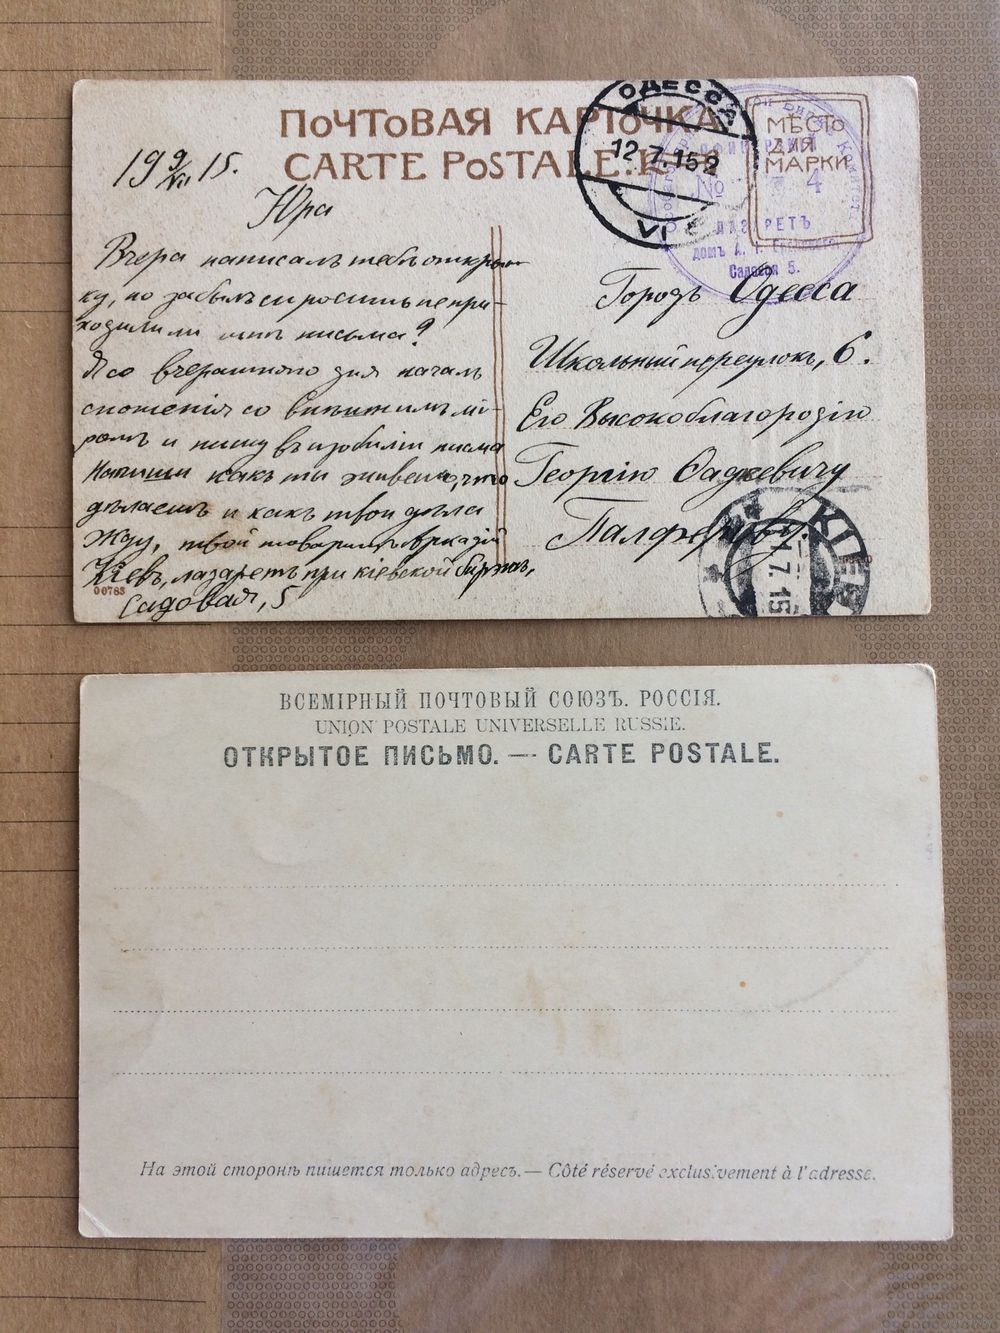 ПОЧТОВАЯ КАРТОЧКА
CARTE POSTALE
МѢСТО
ДЛЯ
МАРКИ
ОДЕССА
12.7.15 2
№ 4
ЛАЗАРЕТЪ
домъ А.
Садовая 5.
19 9/VII 15.
Юра
Вчера написалъ тебѣ откры-
ку, но забылъ спросить не при-
ходили ли мнѣ письма?
Я со вчерашняго дня началъ
сношенія со внѣшнимъ мі-
ромъ и пишу въ изобиліи письма
Напиши какъ ты живешь, что
дѣлаешь и какъ твои дѣла
Жду, твой товарищъ Аркадій
Кіевъ, лазаретъ при кіевской биржѣ,
Садовая, 5
00783
Городъ Одесса
Школьный переулокъ, 6.
Его Высокоблагородію
Георгію Фадѣевичу
КІЕВ
7.15
ВСЕМІРНЫЙ ПОЧТОВЫЙ СОЮЗЪ. РОССІЯ.
UNION POSTALE UNIVERSELLE RUSSIE.
ОТКРЫТОЕ ПИСЬМО. — CARTE POSTALE.
На этой сторонѣ пишется только адресъ. — Côté réservé exclusivement à l'adresse.